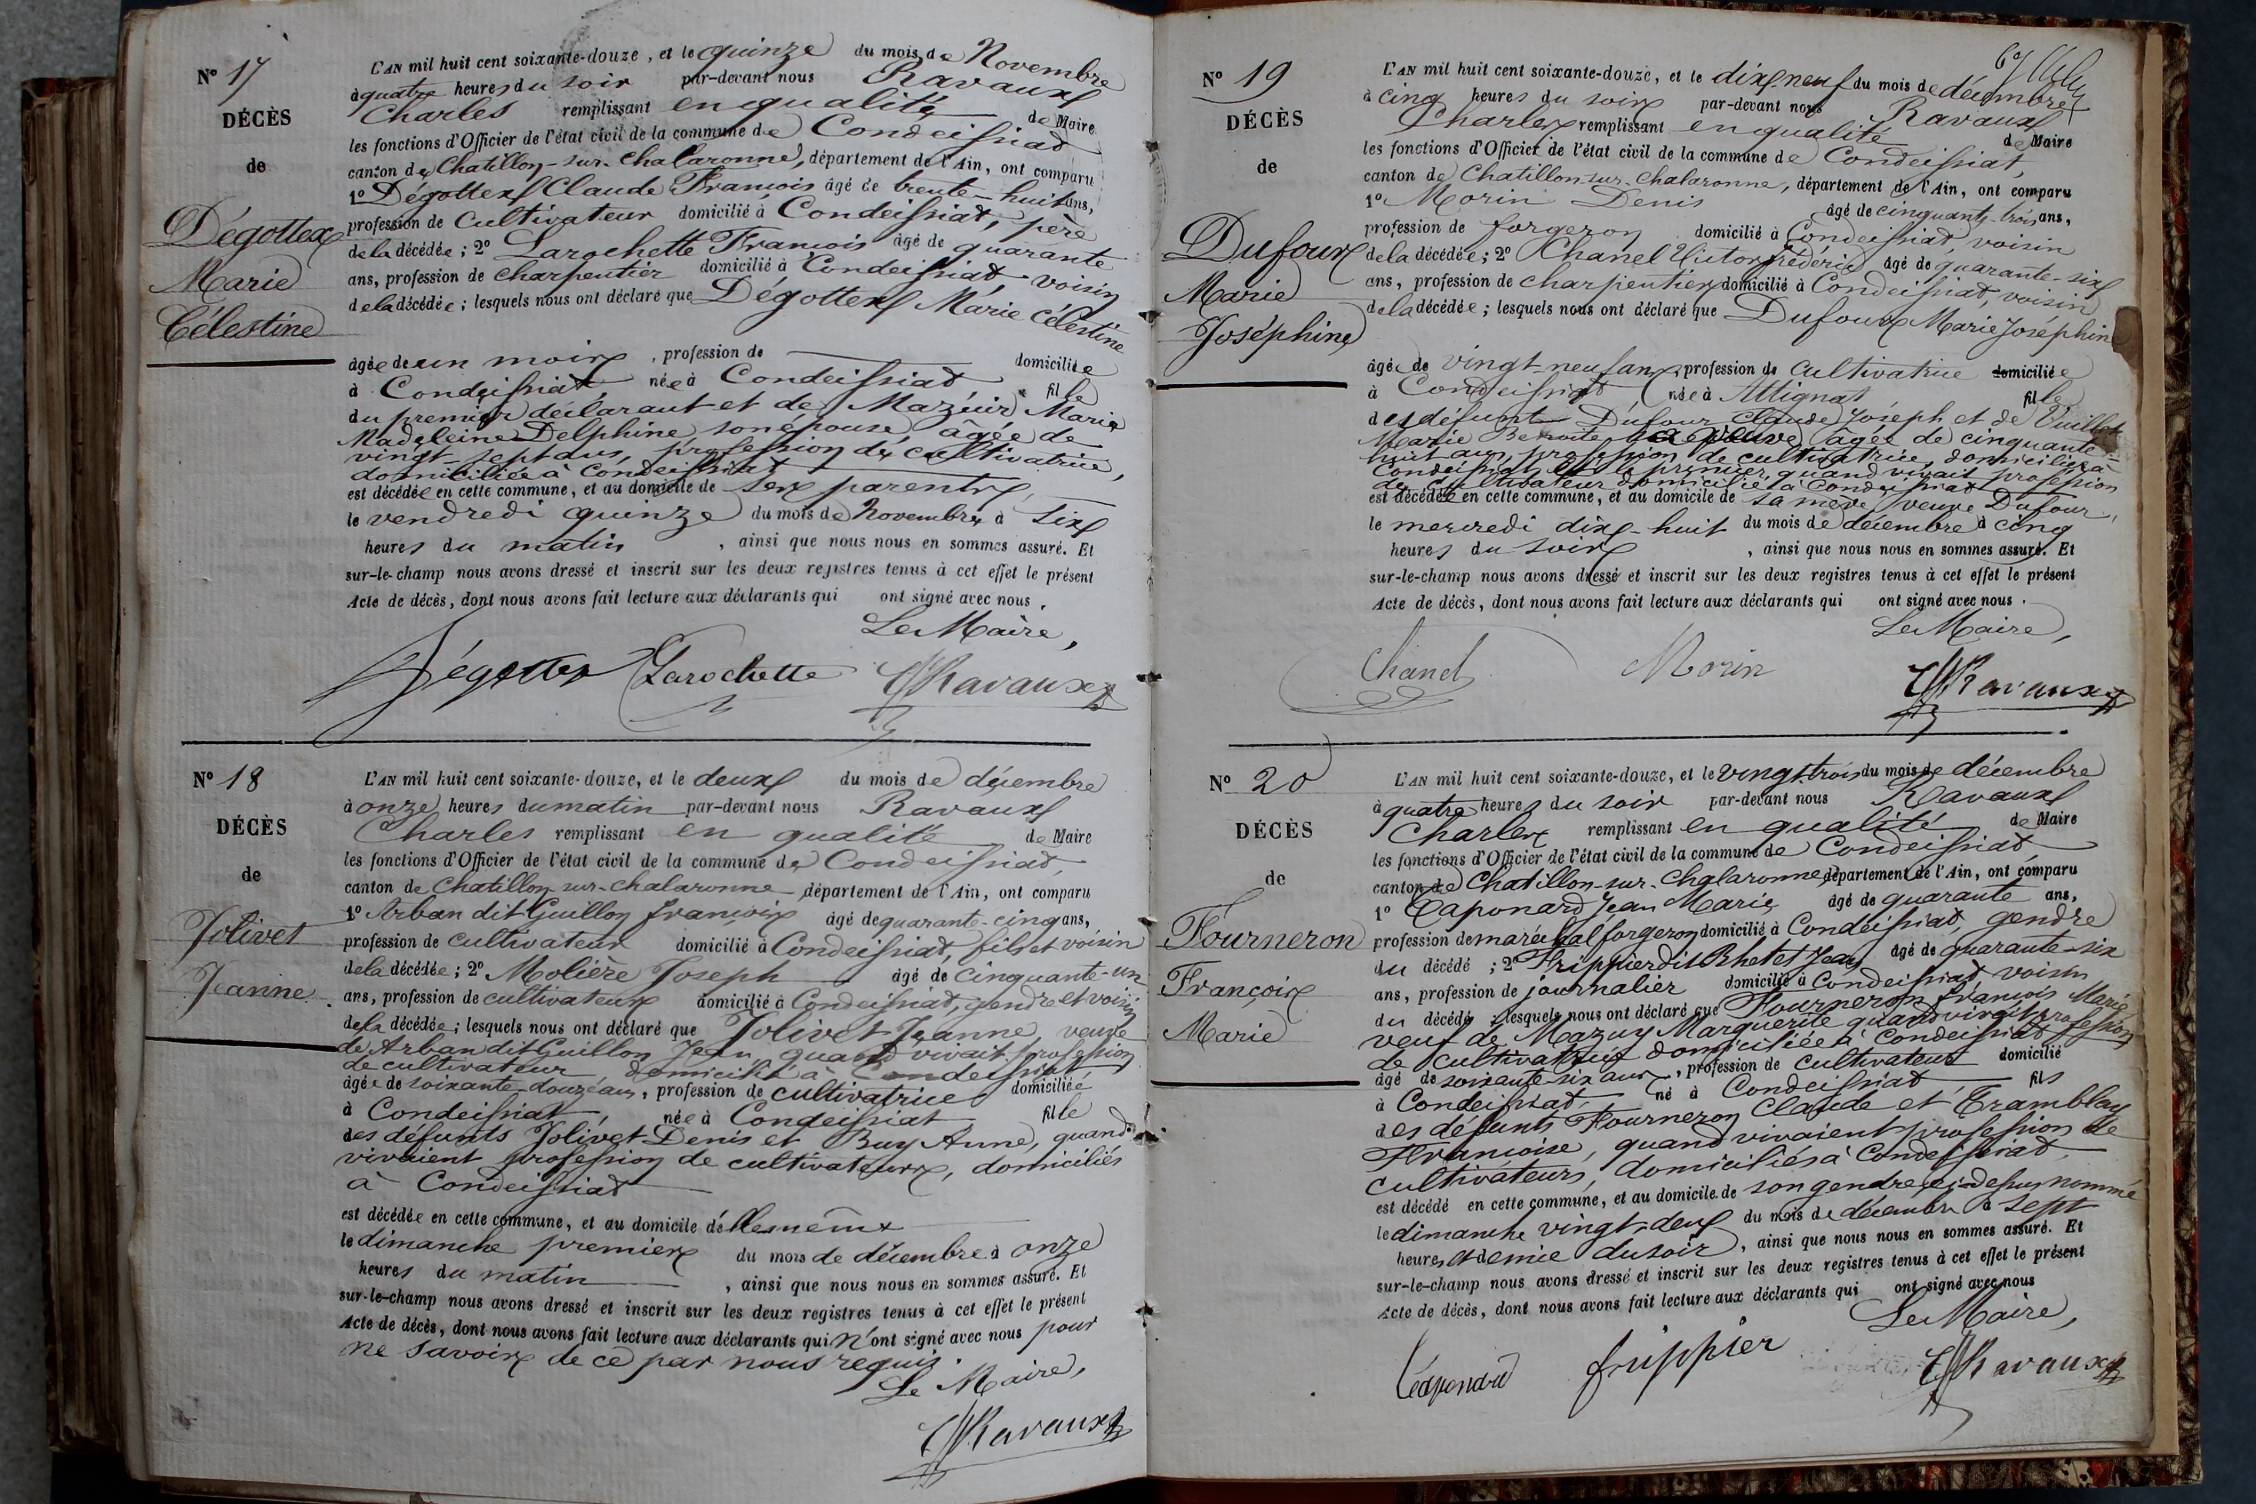 N° 17
DÉCÈS
de
Dégottex
Marie
Célestine
L'AN mil huit cent soixante-douze, et le quinze du mois de Novembre
à quatre heures du soir par-devant nous Ravaux
Charles remplissant en qualité de Maire
les fonctions d'Officier de l'état civil de la commune de Condeissiat
canton de Chatillon-sur-Chalaronne, département de l'Ain, ont comparu
1° Dégottex Claude François âgé de trente-huit ans,
profession de cultivateur domicilié à Condeissiat, père
de la décédée; 2° Larochette François âgé de quarante
ans, profession de charpentier domicilié à Condeissiat voisin
de la décédée; lesquels nous ont déclaré que Dégottex Marie Célestine
âgée de un mois, profession de domiciliée
à Condeissiat, née à Condeissiat fille
du premier déclarant et de Mazuir Marie
Madeleine Delphine son épouse âgée de
vingt-sept ans, profession de cultivatrice,
domiciliée à Condeissiat
est décédée en cette commune, et au domicile de ses parents,
le vendredi quinze du mois de Novembre à six
heures du matin, ainsi que nous nous en sommes assuré. Et
sur-le-champ nous avons dressé et inscrit sur les deux registres tenus à cet effet le présent
Acte de décès, dont nous avons fait lecture aux déclarants qui ont signé avec nous.
Le Maire,
Dégottex Larochette Ravaux
N° 18
DÉCÈS
de
Jolivet
Jeanne.
L'AN mil huit cent soixante-douze, et le deux du mois de décembre
à onze heures du matin par-devant nous Ravaux
Charles remplissant en qualité de Maire
les fonctions d'Officier de l'état civil de la commune de Condeissiat,
canton de Chatillon-sur-Chalaronne département de l'Ain, ont comparu
1° Arban dit Guillon françois âgé de quarante-cinq ans,
profession de cultivateur domicilié à Condeissiat, fils et voisin
de la décédée; 2° Molière Joseph âgé de cinquante-un
ans, profession de cultivateur domicilié à Condeissiat, gendre et voisin
de la décédée; lesquels nous ont déclaré que Jolivet Jeanne, veuve
de Arban dit Guillon Jean quand vivait profession
de cultivateur domicilié à Condeissiat
âgée de soixante-douze ans, profession de cultivatrice domiciliée
à Condeissiat, née à Condeissiat fille
des défunts Jolivet Denis et Buy Anne, quand
vivaient profession de cultivateurs, domiciliés
à Condeissiat
est décédée en cette commune, et au domicile d'elle même
le dimanche premier du mois de décembre à onze
heures du matin, ainsi que nous nous en sommes assuré. Et
sur-le-champ nous avons dressé et inscrit sur les deux registres tenus à cet effet le présent
Acte de décès, dont nous avons fait lecture aux déclarants qui n'ont signé avec nous pour
ne savoir de ce par nous requis.
Le Maire,
Ravaux
N° 19
DÉCÈS
de
Dufour
Marie
Joséphine
L'AN mil huit cent soixante-douze, et le dix-neuf du mois de décembre
à cinq heures du soir par-devant nous Ravaux
Charles remplissant en qualité de Maire
les fonctions d'Officier de l'état civil de la commune de Condeissiat,
canton de Chatillon-sur-Chalaronne, département de l'Ain, ont comparu
1° Morin Denis âgé de cinquante-trois ans,
profession de forgeron domicilié à Condeissiat, voisin
de la décédée; 2° Chanel Victor frédéric âgé de quarante-six
ans, profession de charpentier domicilié à Condeissiat, voisin
de la décédée; lesquels nous ont déclaré que Dufour Marie Joséphine
âgée de vingt-neuf ans, profession de cultivatrice domiciliée
à Condeissiat, née à Attignat fille
des défunt Dufour Claude Joseph et de Vuillet
Marie Benoite, sa veuve âgée de cinquante-
huit ans, profession de cultivatrice, domiciliée à
Condeissiat et le premier quand vivait profession
de cultivateur domicilié à Condeissiat
est décédée en cette commune, et au domicile de sa mère veuve Dufour,
le mercredi dix-huit du mois de décembre à cinq
heures du soir, ainsi que nous nous en sommes assuré. Et
sur-le-champ nous avons dressé et inscrit sur les deux registres tenus à cet effet le présent
Acte de décès, dont nous avons fait lecture aux déclarants qui ont signé avec nous.
Le Maire,
Chanel Morin Ravaux
N° 20
DÉCÈS
de
Fourneron
François
Marie
L'AN mil huit cent soixante-douze, et le vingt-trois du mois de décembre
à quatre heures du soir par-devant nous Ravaux
Charles remplissant en qualité de Maire
les fonctions d'Officier de l'état civil de la commune de Condeissiat
canton de Chatillon-sur-Chalaronne département de l'Ain, ont comparu
1° Caponard Jean Marie âgé de quarante ans,
profession de maréchal forgeron domicilié à Condeissiat, gendre
du décédé; 2° Frippier dit Rhetet Jean âgé de quarante-six
ans, profession de journalier domicilié à Condeissiat, voisin
du décédé; lesquels nous ont déclaré que Fourneron François Marie,
veuf de Mazuy Marguerite quand vivait profession
de cultivatrice domiciliée à Condeissiat
âgé de soixante-six ans, profession de cultivateur domicilié
à Condeissiat né à Condeissiat fils
des défunts Fourneron Claude et Tramblay
Françoise, quand vivaient profession de
cultivateurs, domiciliés à Condeissiat
est décédé en cette commune, et au domicile de son gendre ci-dessus nommé
le dimanche vingt-deux du mois de décembre à sept
heures et demie du soir, ainsi que nous nous en sommes assuré. Et
sur-le-champ nous avons dressé et inscrit sur les deux registres tenus à cet effet le présent
Acte de décès, dont nous avons fait lecture aux déclarants qui ont signé avec nous
Le Maire,
frippier Ravaux